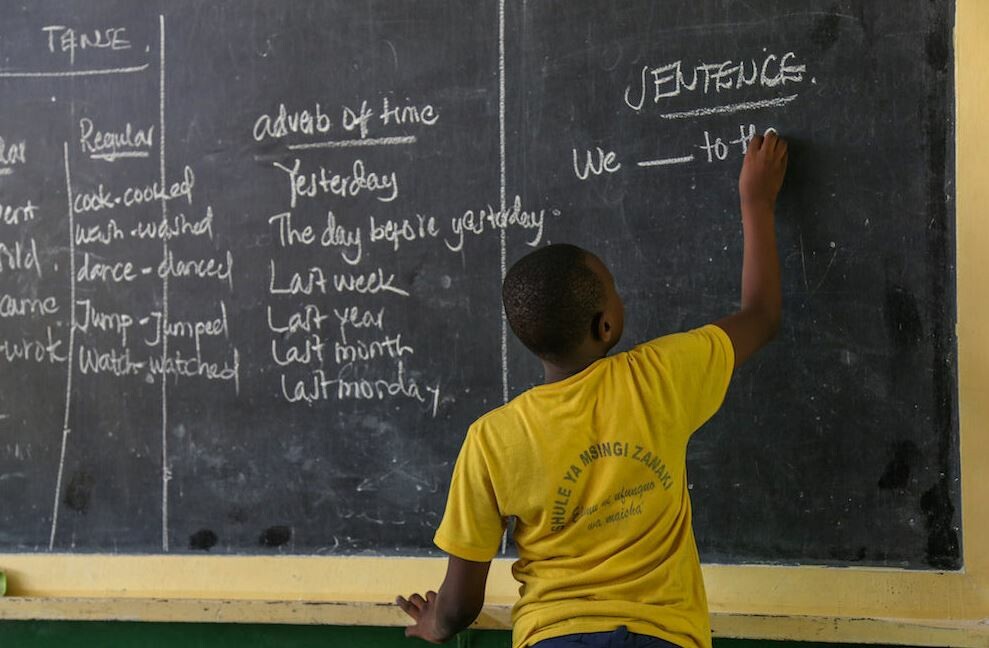 TENSE.
came
-wrok
Regular
cook-cooked
wash-washed
dance-danced
Jump-Jumped
Watch-watched
adverb of time
Yesterday
The day before yesterday.
Last week
Last year
Last month
Last monday
SENTENCE.
We ___ to the
SHULE YA MSINGI ZANAKI
Elimu ni ufunguo
wa maisha